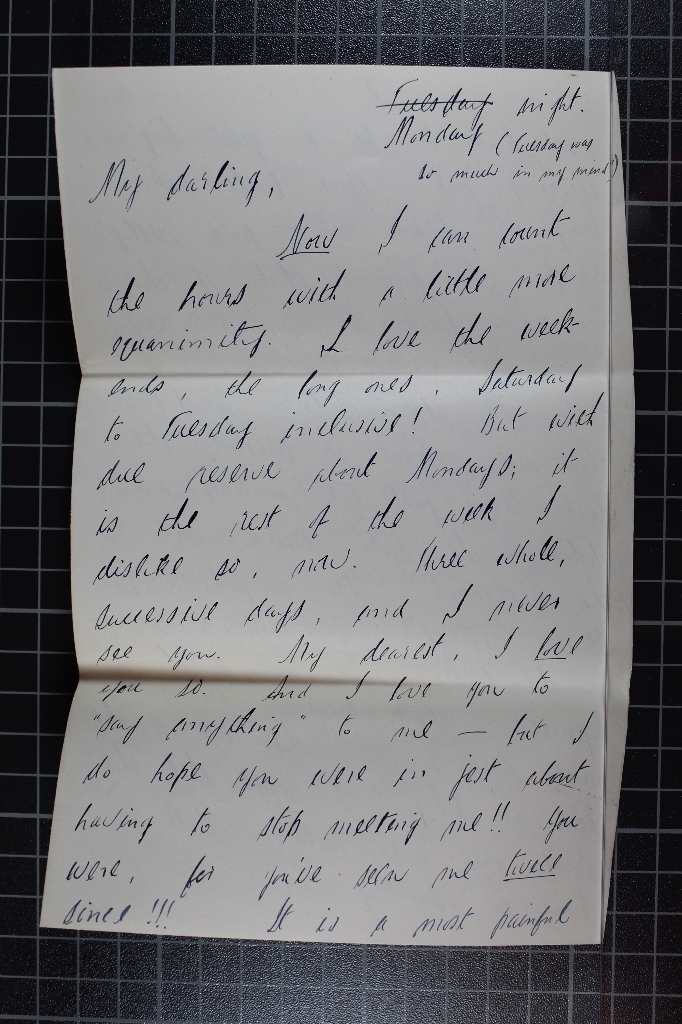 Tuesday night.
Monday (Tuesday was
so much in my mind!)
My darling,
Now I can count
the hours with a little more
equanimity. I love the week-
ends, the long ones, Saturday
to Tuesday inclusive! But with
due reserve about Mondays; it
is the rest of the week I
dislike so, now. Three whole,
successive days, and I never
see you. My dearest, I love
you so. And I love you to
"say anything" to me — but I
do hope you were in jest about
having to stop meeting me!! You
were, for you've seen me twice
since!!! It is a most painful